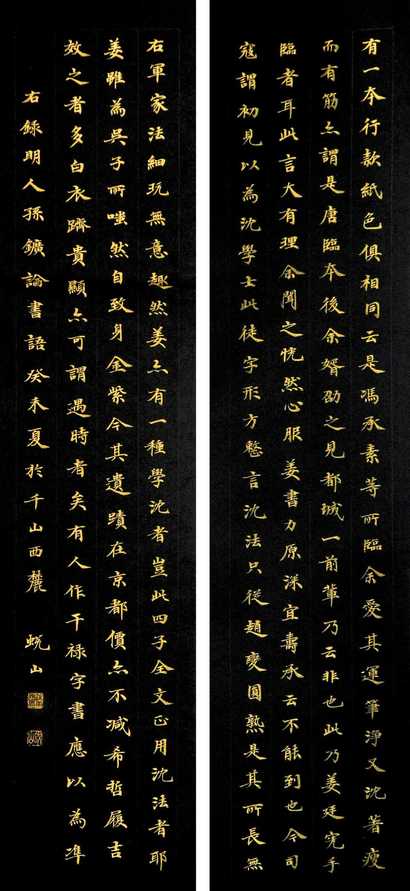 有一本行款紙色俱相同云是馮承素等所臨余愛其運筆淨又沈著瘦
而有筋亦謂是唐臨本後余婿劭之見都城一前輩乃云非也此乃姜廷宪手
臨者耳此言大有理余聞之恍然心服姜書力原深宜壽承云不能到也今司
寇謂初見以為沈學士此徒字形方整言沈法只從趙變圓熟是其所長無
右軍家法細玩無意趣然姜亦有一種學沈者豈此四子全文正用沈法者耶
姜雖為吳子所嗤然自致身金紫今其遺蹟在京都價亦不減希哲履吉
效之者多白衣躋貴顯亦可謂遇時者矣有人作干祿字書應以為準
右錄明人孫鑛論書語癸未夏於千山西麓 蜕山